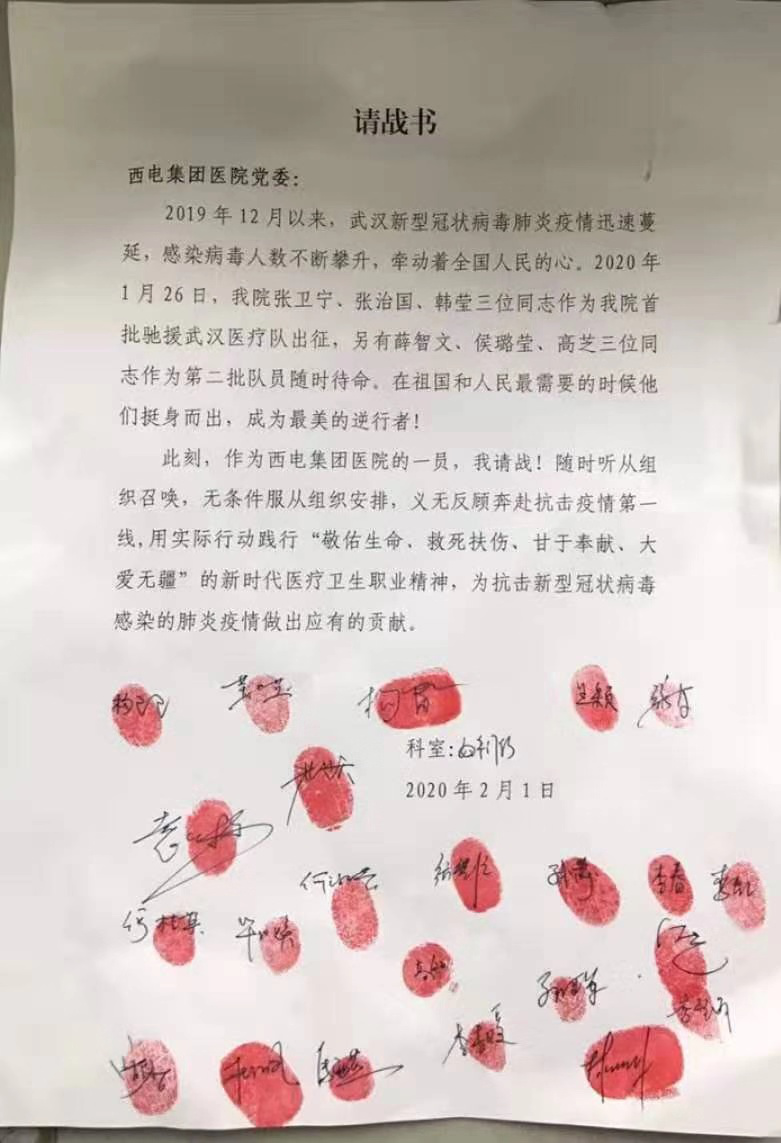 请战书
西电集团医院党委：
2019年12月以来，武汉新型冠状病毒肺炎疫情迅速蔓
延，感染病毒人数不断攀升，牵动着全国人民的心。2020年
1月26日，我院张卫宁、张治国、韩莹三位同志作为我院首
批驰援武汉医疗队出征，另有薛智文、侯璐莹、高芝三位同
志作为第二批队员随时待命。在祖国和人民最需要的时候他
们挺身而出，成为最美的逆行者！
此刻，作为西电集团医院的一员，我请战！随时听从组
织召唤，无条件服从组织安排，义无反顾奔赴抗击疫情第一
线,用实际行动践行“敬佑生命、救死扶伤、甘于奉献、大
爱无疆”的新时代医疗卫生职业精神，为抗击新型冠状病毒
感染的肺炎疫情做出应有的贡献。
科室：
2020年2月1日
李春